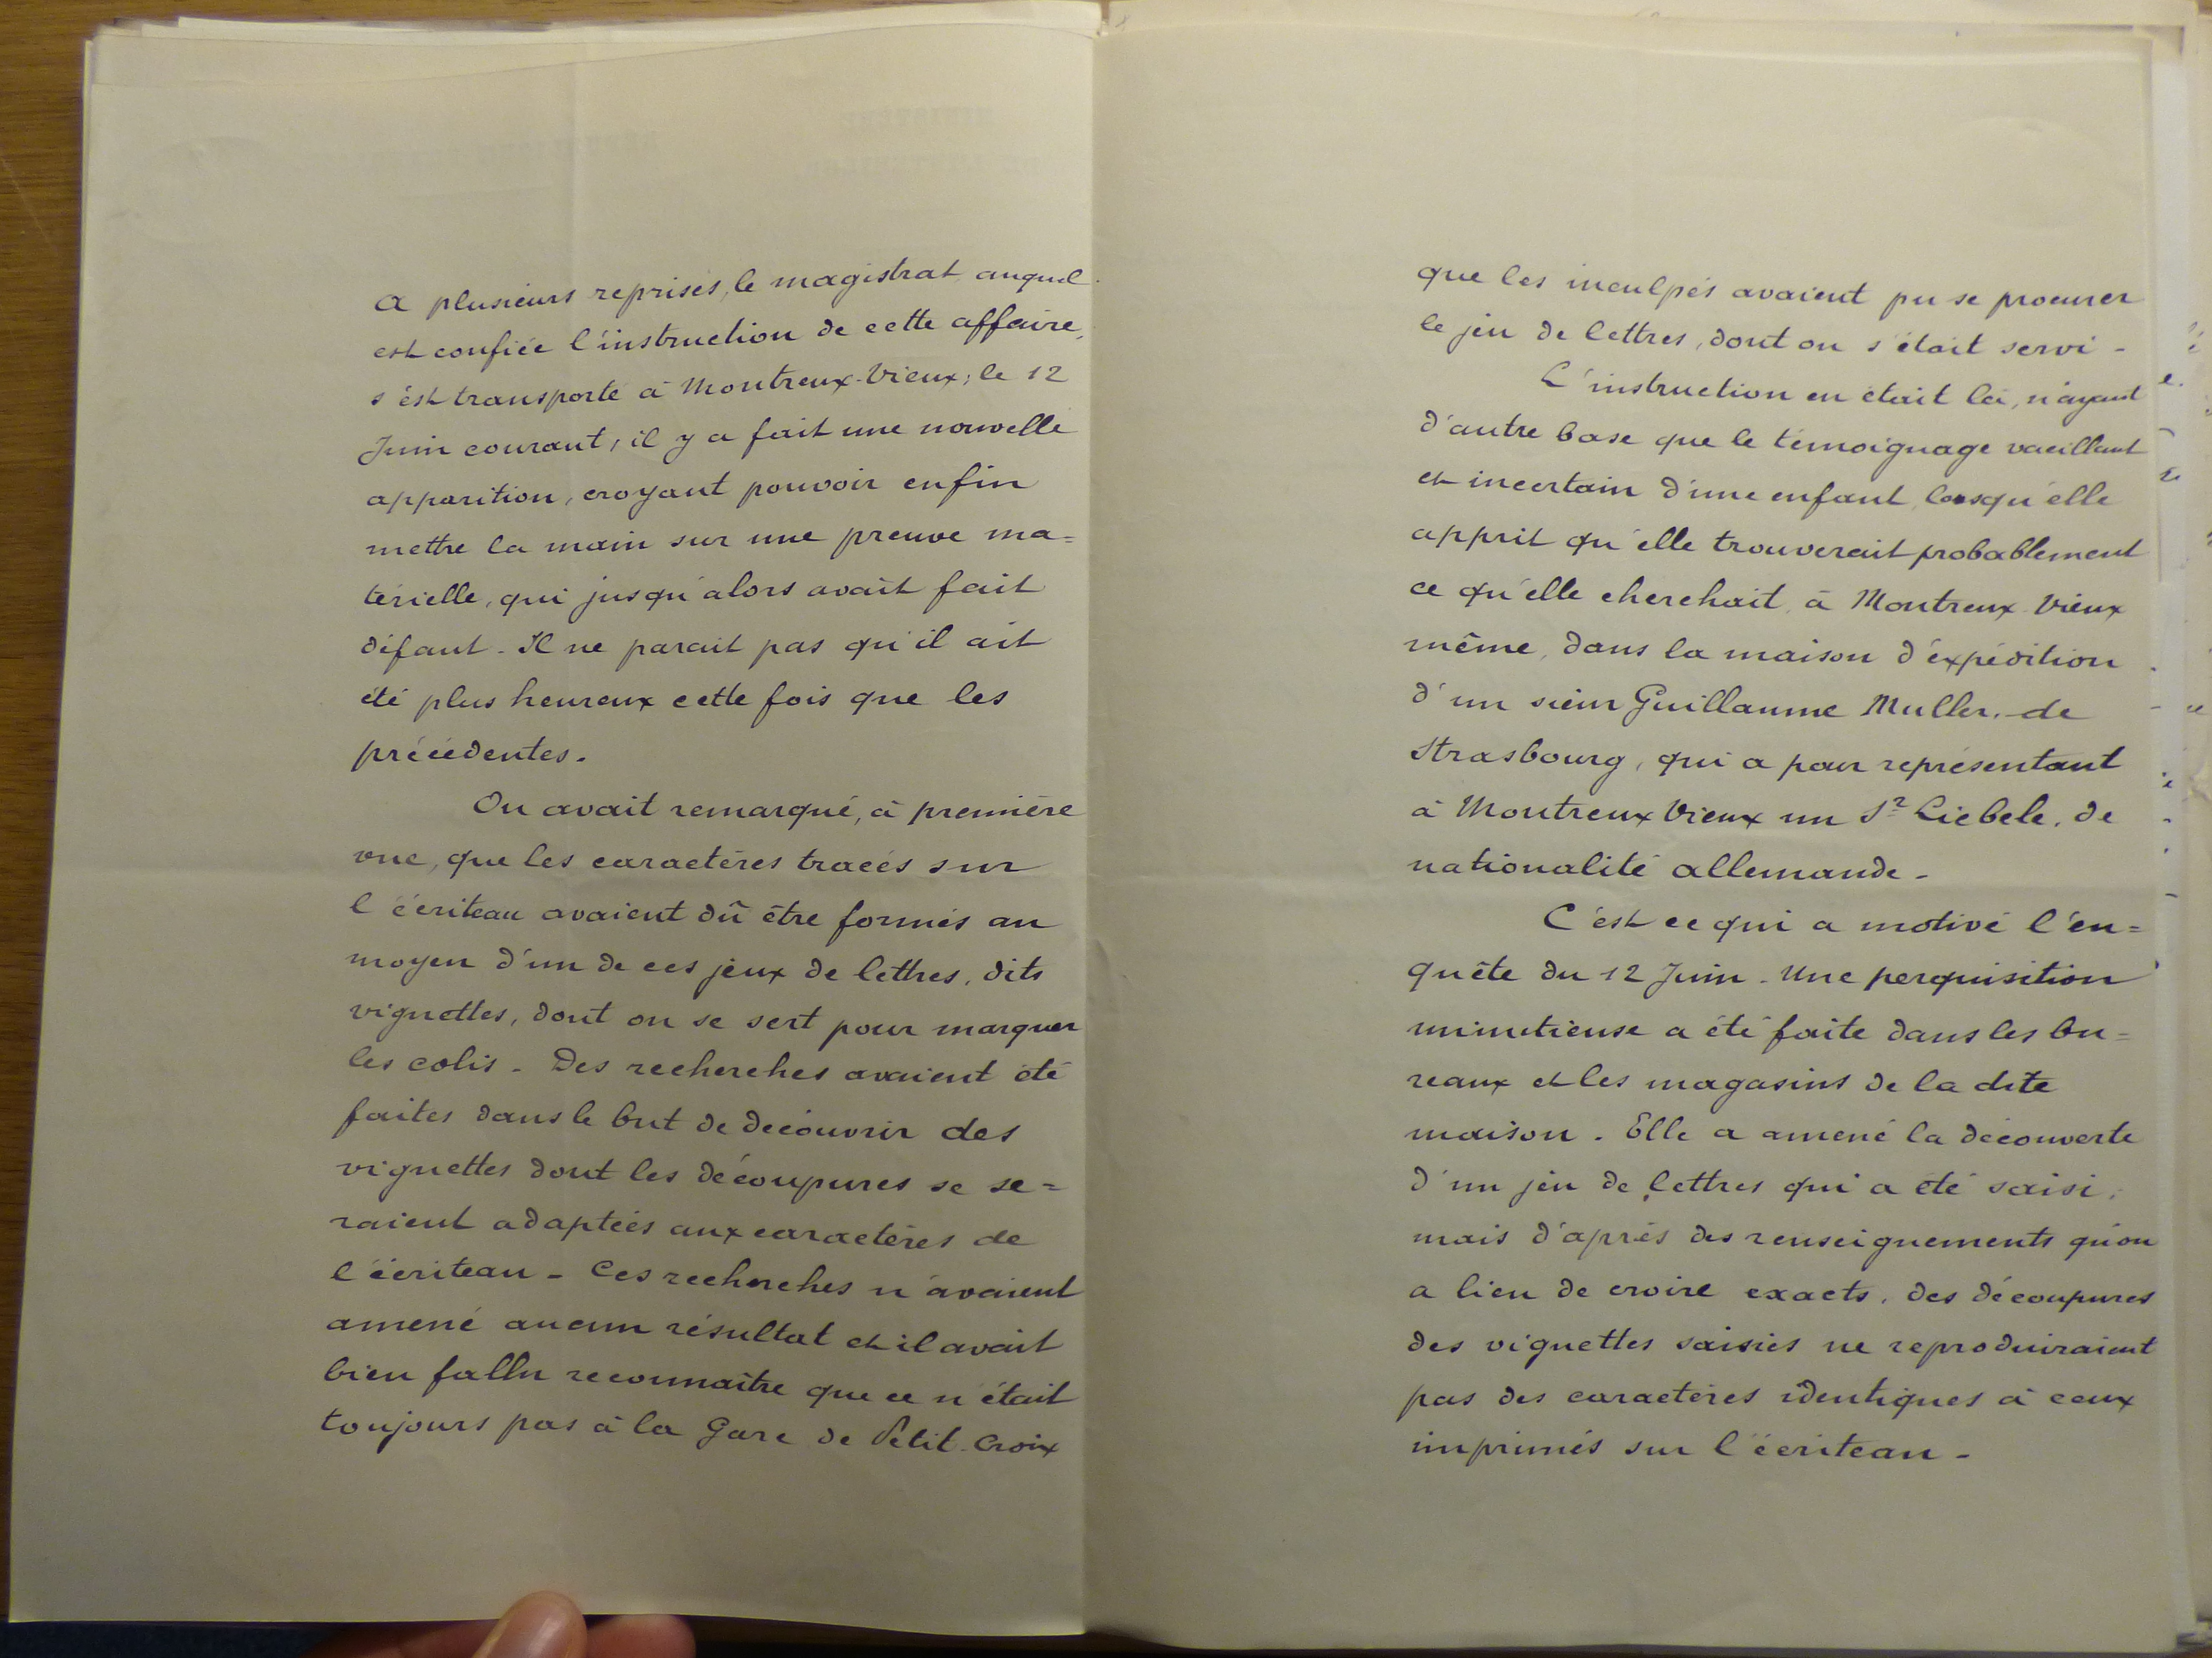 A plusieurs reprises, le magistrat auquel
est confiée l'instruction de cette affaire,
s'est transporté à Montreux-Vieux; le 12
Juin courant, il y a fait une nouvelle
apparition, croyant pouvoir enfin
mettre la main sur une preuve ma=
térielle, qui jusqu'alors avait fait
défaut. Il ne parait pas qu'il ait
été plus heureux cette fois que les
précédentes.
On avait remarqué, à première
vue, que les caractères tracés sur
l'écriteau avaient dû être formés au
moyen d'un de ces jeux de lettres, dits
vignettes, dont on se sert pour marquer
les colis - Des recherches avaient été
faites dans le but de découvrir des
vignettes dont les découpures se se=
raient adaptées aux caractères de
l'écriteau - Ces recherches n'avaient
amené aucun résultat et il avait
bien fallu reconnaître que ce n'était
toujours pas à la Gare de Petit-Croix
que les inculpés avaient pu se procurer
le jeu de lettres, dont on s'était servi -
L'instruction en était là, n'ayant
d'autre base que le témoignage vacillant
et incertain d'une enfant, lorsqu'elle
apprit qu'elle trouverait probablement
ce qu'elle cherchait, à Montreux-Vieux
même, dans la maison d'expédition
d'un sieur Guillaume Muller, de
Strasbourg, qui a pour représentant
à Montreux Vieux un Sr Liebele, de
nationalité allemande -
C'est ce qui a motivé l'en=
quête du 12 Juin - Une perquisition
minutieuse a été faite dans les bu=
reaux et les magasins de la dite
maison. Elle a amené la découverte
d'un jeu de lettres qui a été saisi,
mais d'après des renseignements qu'on
a lieu de croire exacts, des découpures
des vignettes saisies ne reproduiraient
pas des caractères identiques à ceux
imprimés sur l'écriteau -